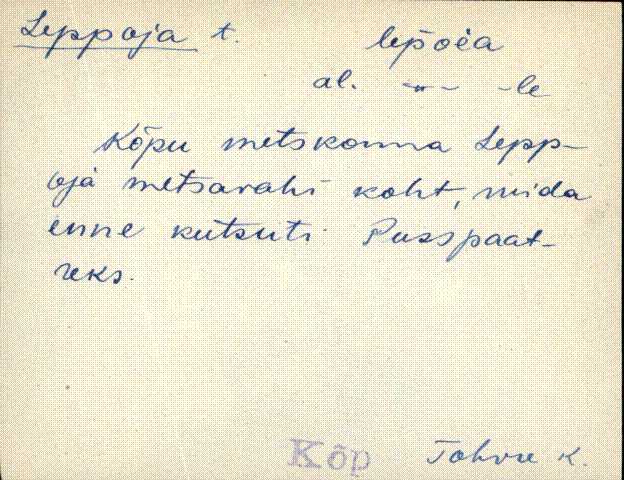 Leppoja t. lep̄oi̯a
al. -"- -le
Kõpu metskonna Lepp-
oja metsavahi koht, mida
enne kutsuti Pusspaat-
reks.
Kõp Tohvre k.